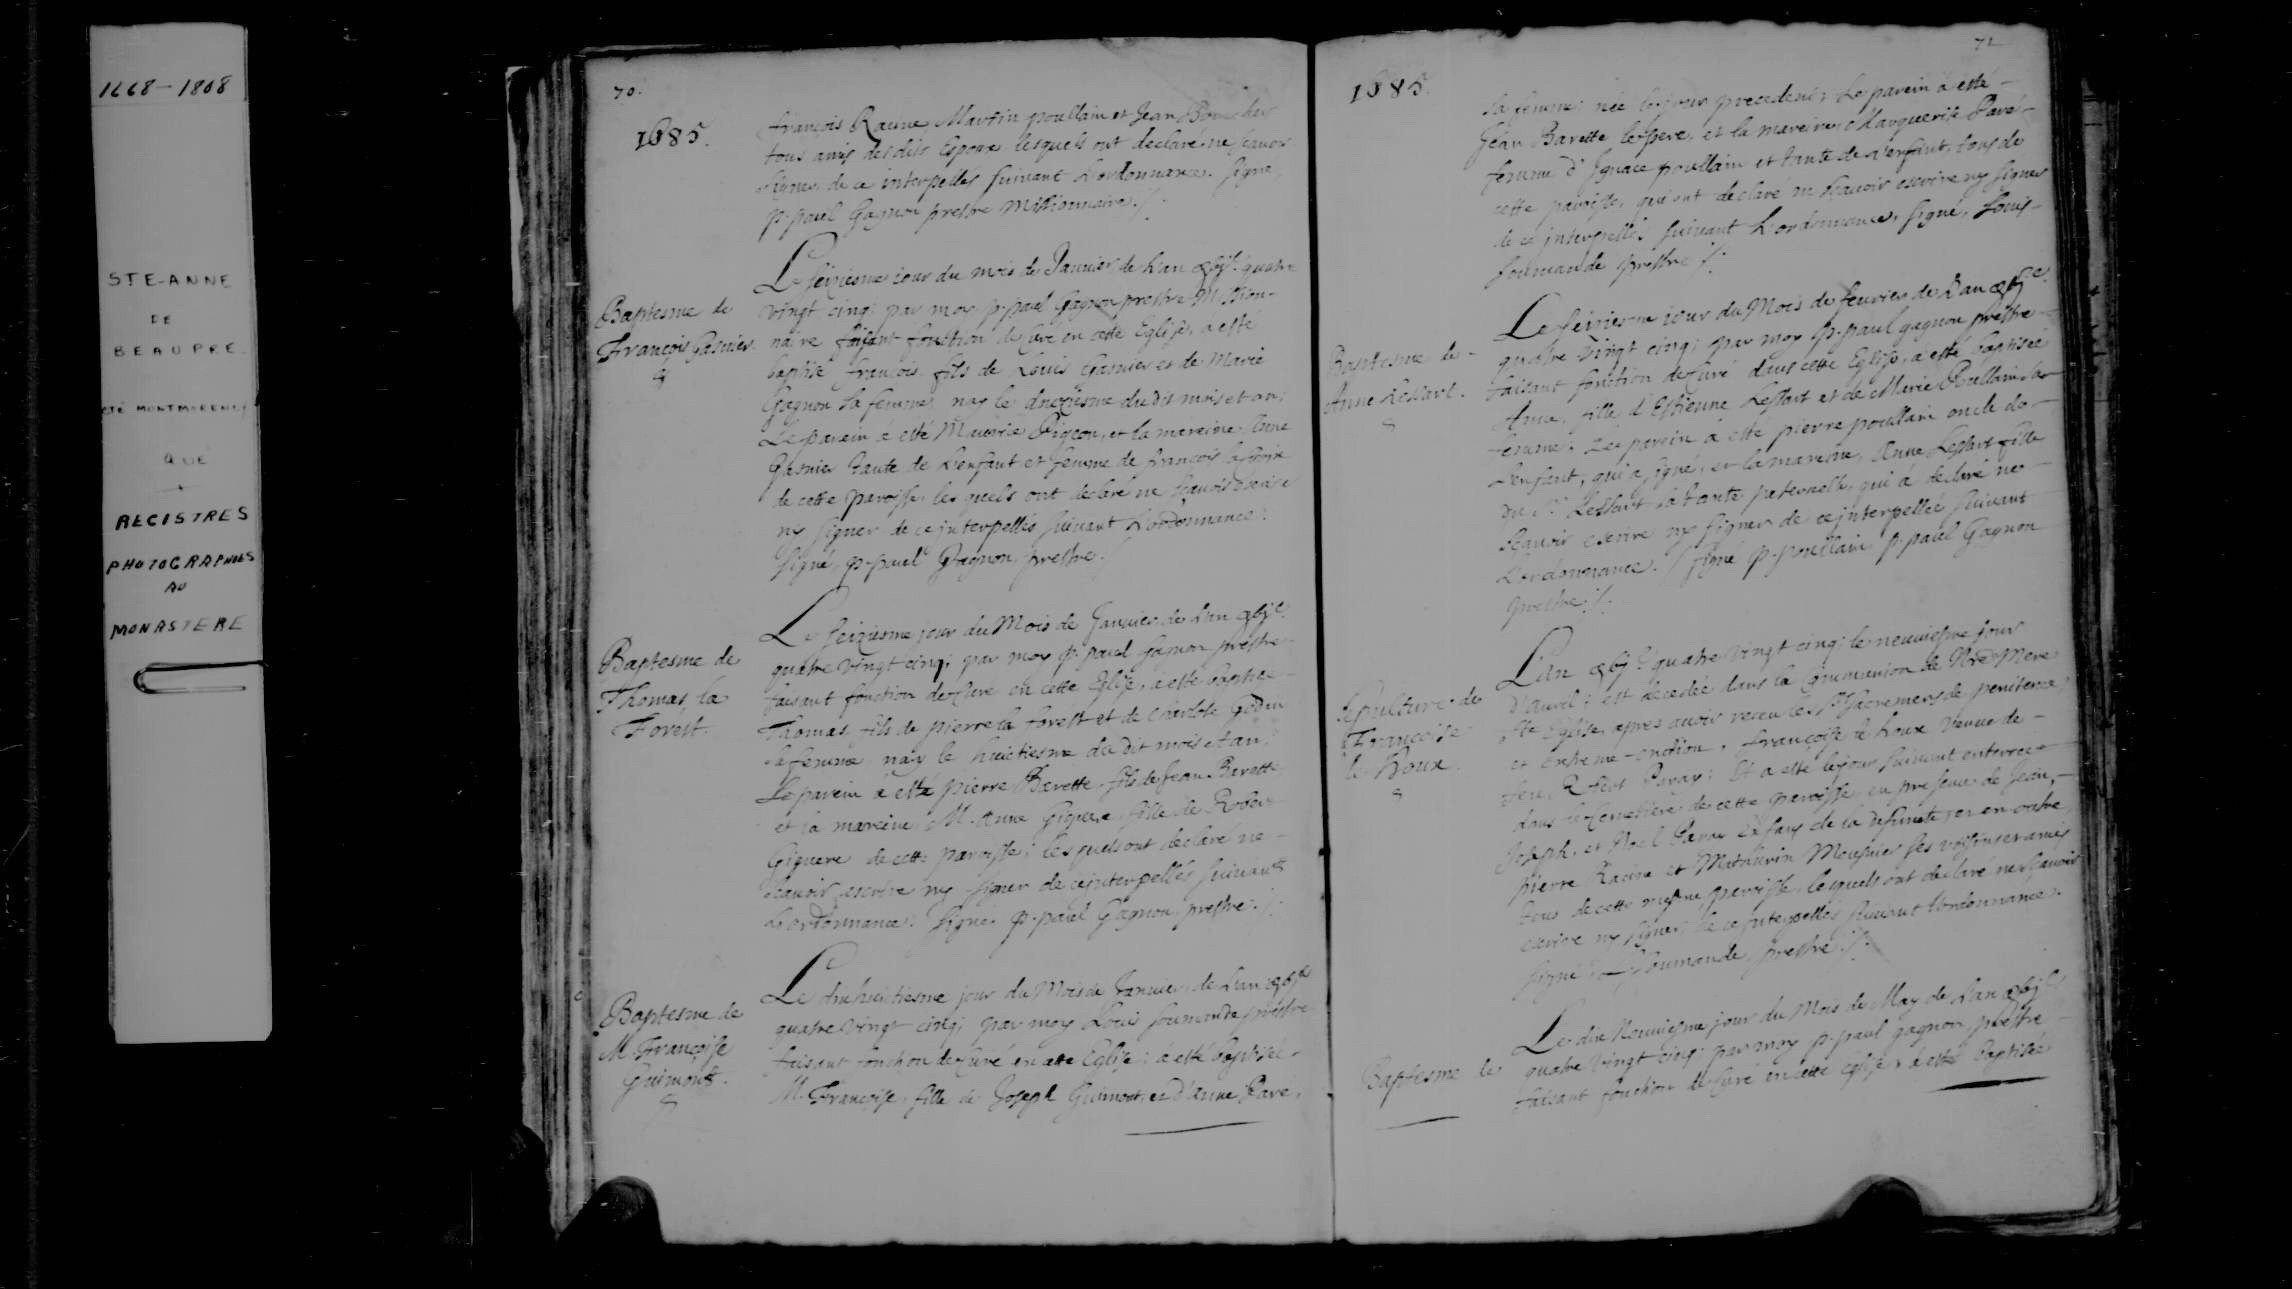 1668-1808
STE-ANNE
DE
BEAUPRE
CTÉ MONTMORENCY
QUE
REGISTRES
PHOTOGRAPHIES
AU
MONASTERE
70.
1685.
francois Racine Martin poullain et Jean
tous amis desdits Espoux lesquels ont declaré ne scavoir
signer de ce interpelles suivant L'ordonnance. signé,
p. paul Gagnon prestre Missionnaire ./.
Baptesme de
François Gasnier
Le seiziesme iour du mois de Januier de L'an gbjc quatre
vingt cinq; par moy p. paul Gagnon prestre Mission-
naire faisant fonction de Curé en cette Eglise, à esté
baptisé francois fils de Louis Gasnier et de Marie
Gagnon sa femme, nay le dudit mois et an;
Le parein à esté Maurice Pigeon, et la mareine Anne
Gasnier Tante de L'enfant et femme de francois
de cette paroisse, les quels ont declaré ne scauoir escrire
ny signer de ce interpellés suivant L'ordonnance.
signé, p. paul Gagnon prestre ./
Baptesme de
Thomas la
Forest.
Le seiziesme jour du Mois de Januier de L'an gbjc
quatre vingt cinq; par moy p. paul Gagnon prestre
faisant fonction de Curé en cette Eglise, à esté baptisé
Thomas fils de pierre la forest et de Charlote Godin
sa femme nay le huictiesme du dit mois et an;
Le parein à esté pierre Barette fils de Jean Barette
et la mareine M. Anne Giguere fille de Robert
Giguere de cette paroisse; lesquels ont declaré ne
scauoir escrire ny signer de ce interpellés suivant
L'ordonnance. signé. p. paul Gagnon prestre ./.
Baptesme de
M. Françoise
Guimont.
Le dixhuictiesme jour du Mois de Januier, de L'an gbjc
quatre vingt cinq; par moy Louis soumande prestre
faisant fonction de Curé en cette Eglise; à esté baptisée
M. Françoise, fille de Joseph Guimont et d'Anne Paré,
71
1685.
sa femme; née le iour precedent; Le parein à esté
Jean Barette le pere, et la mareine Marguerite Paré
femme d'Ignace poullain et tante de l'enfant, tous de
cette paroisse, qui ont declaré ne scauoir escrire ny signer
de ce interpellés suivant L'ordonnance, signé, Louis
soumande prestre ./.
Baptesme de
Anne Lessart.
Le seiziesme iour du Mois de feurier de L'an gbjc
quatre vingt cinq; par moy p. paul gagnon prestre
faisant fonction de Curé dans cette Eglise, à esté baptisée
Anne, fille d'Estienne Lessart et de Marie Poullain sa
femme; Le parein à esté pierre poullain oncle de
L'enfant, qui a signé, et la mareine, Anne Lessart fille
du Sr. Lessart sa tante paternelle, qui à declaré ne
scauoir escrire ny signer de ce interpellée suivant
L'ordonnance. / signé p. poullain p. paul Gagnon
prestre ./.
Sepulture de
Françoise
le Houx.
L'an gbjc quatre vingt cinq; le neuuiesme jour
d'auril; est decedée dans la Communion de Nre Mere
Ste Eglise, apres auoir receu les Sts Sacremens de penitence
et Extreme-onction, Françoise le houx Veuue de
feu Robert Paray; Et a esté le jour suivant enterrée
dans le Cemetiere de cette paroisse, en presence de Jean,
Joseph, et Noel Paré Enfans de la defuncte, et en outre
pierre Racine et Mathurin Meusnier ses voisins et amis
tous de cette mesme paroisse, lesquels ont declaré ne scauoir
escrire ny signer, de ce interpellés suivant L'ordonnance.
signé, L. soumande, prestre ./.
Baptesme de
Le dix Neuuiesme jour du Mois de May de L'an gbjc
quatre vingt cinq; par moy p. paul gagnon, prestre
faisant fonction de Curé en cette Eglise, à esté baptisée